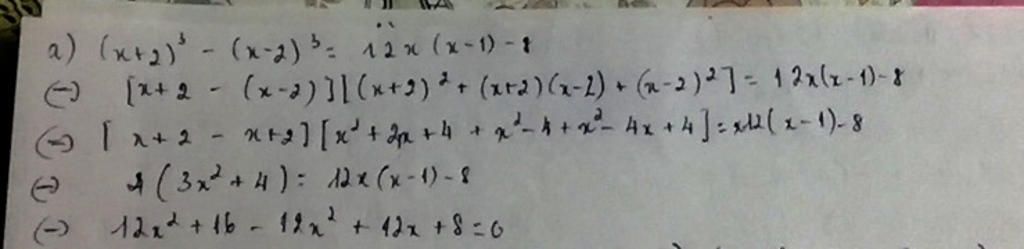 a) (x+2)³ - (x-2)³ = 12x(x-1)-8
(=) [x+2 - (x-2)][(x+2)² + (x+2)(x-2) + (x-2)²] = 12x(x-1)-8
(=) [x+2 - x+2][x²+2x+4 + x²-4+x²-4x+4] = x12(x-1)-8
(=) 4(3x²+4) = 12x(x-1)-8
(=) 12x²+16 - 12x² + 12x +8=0